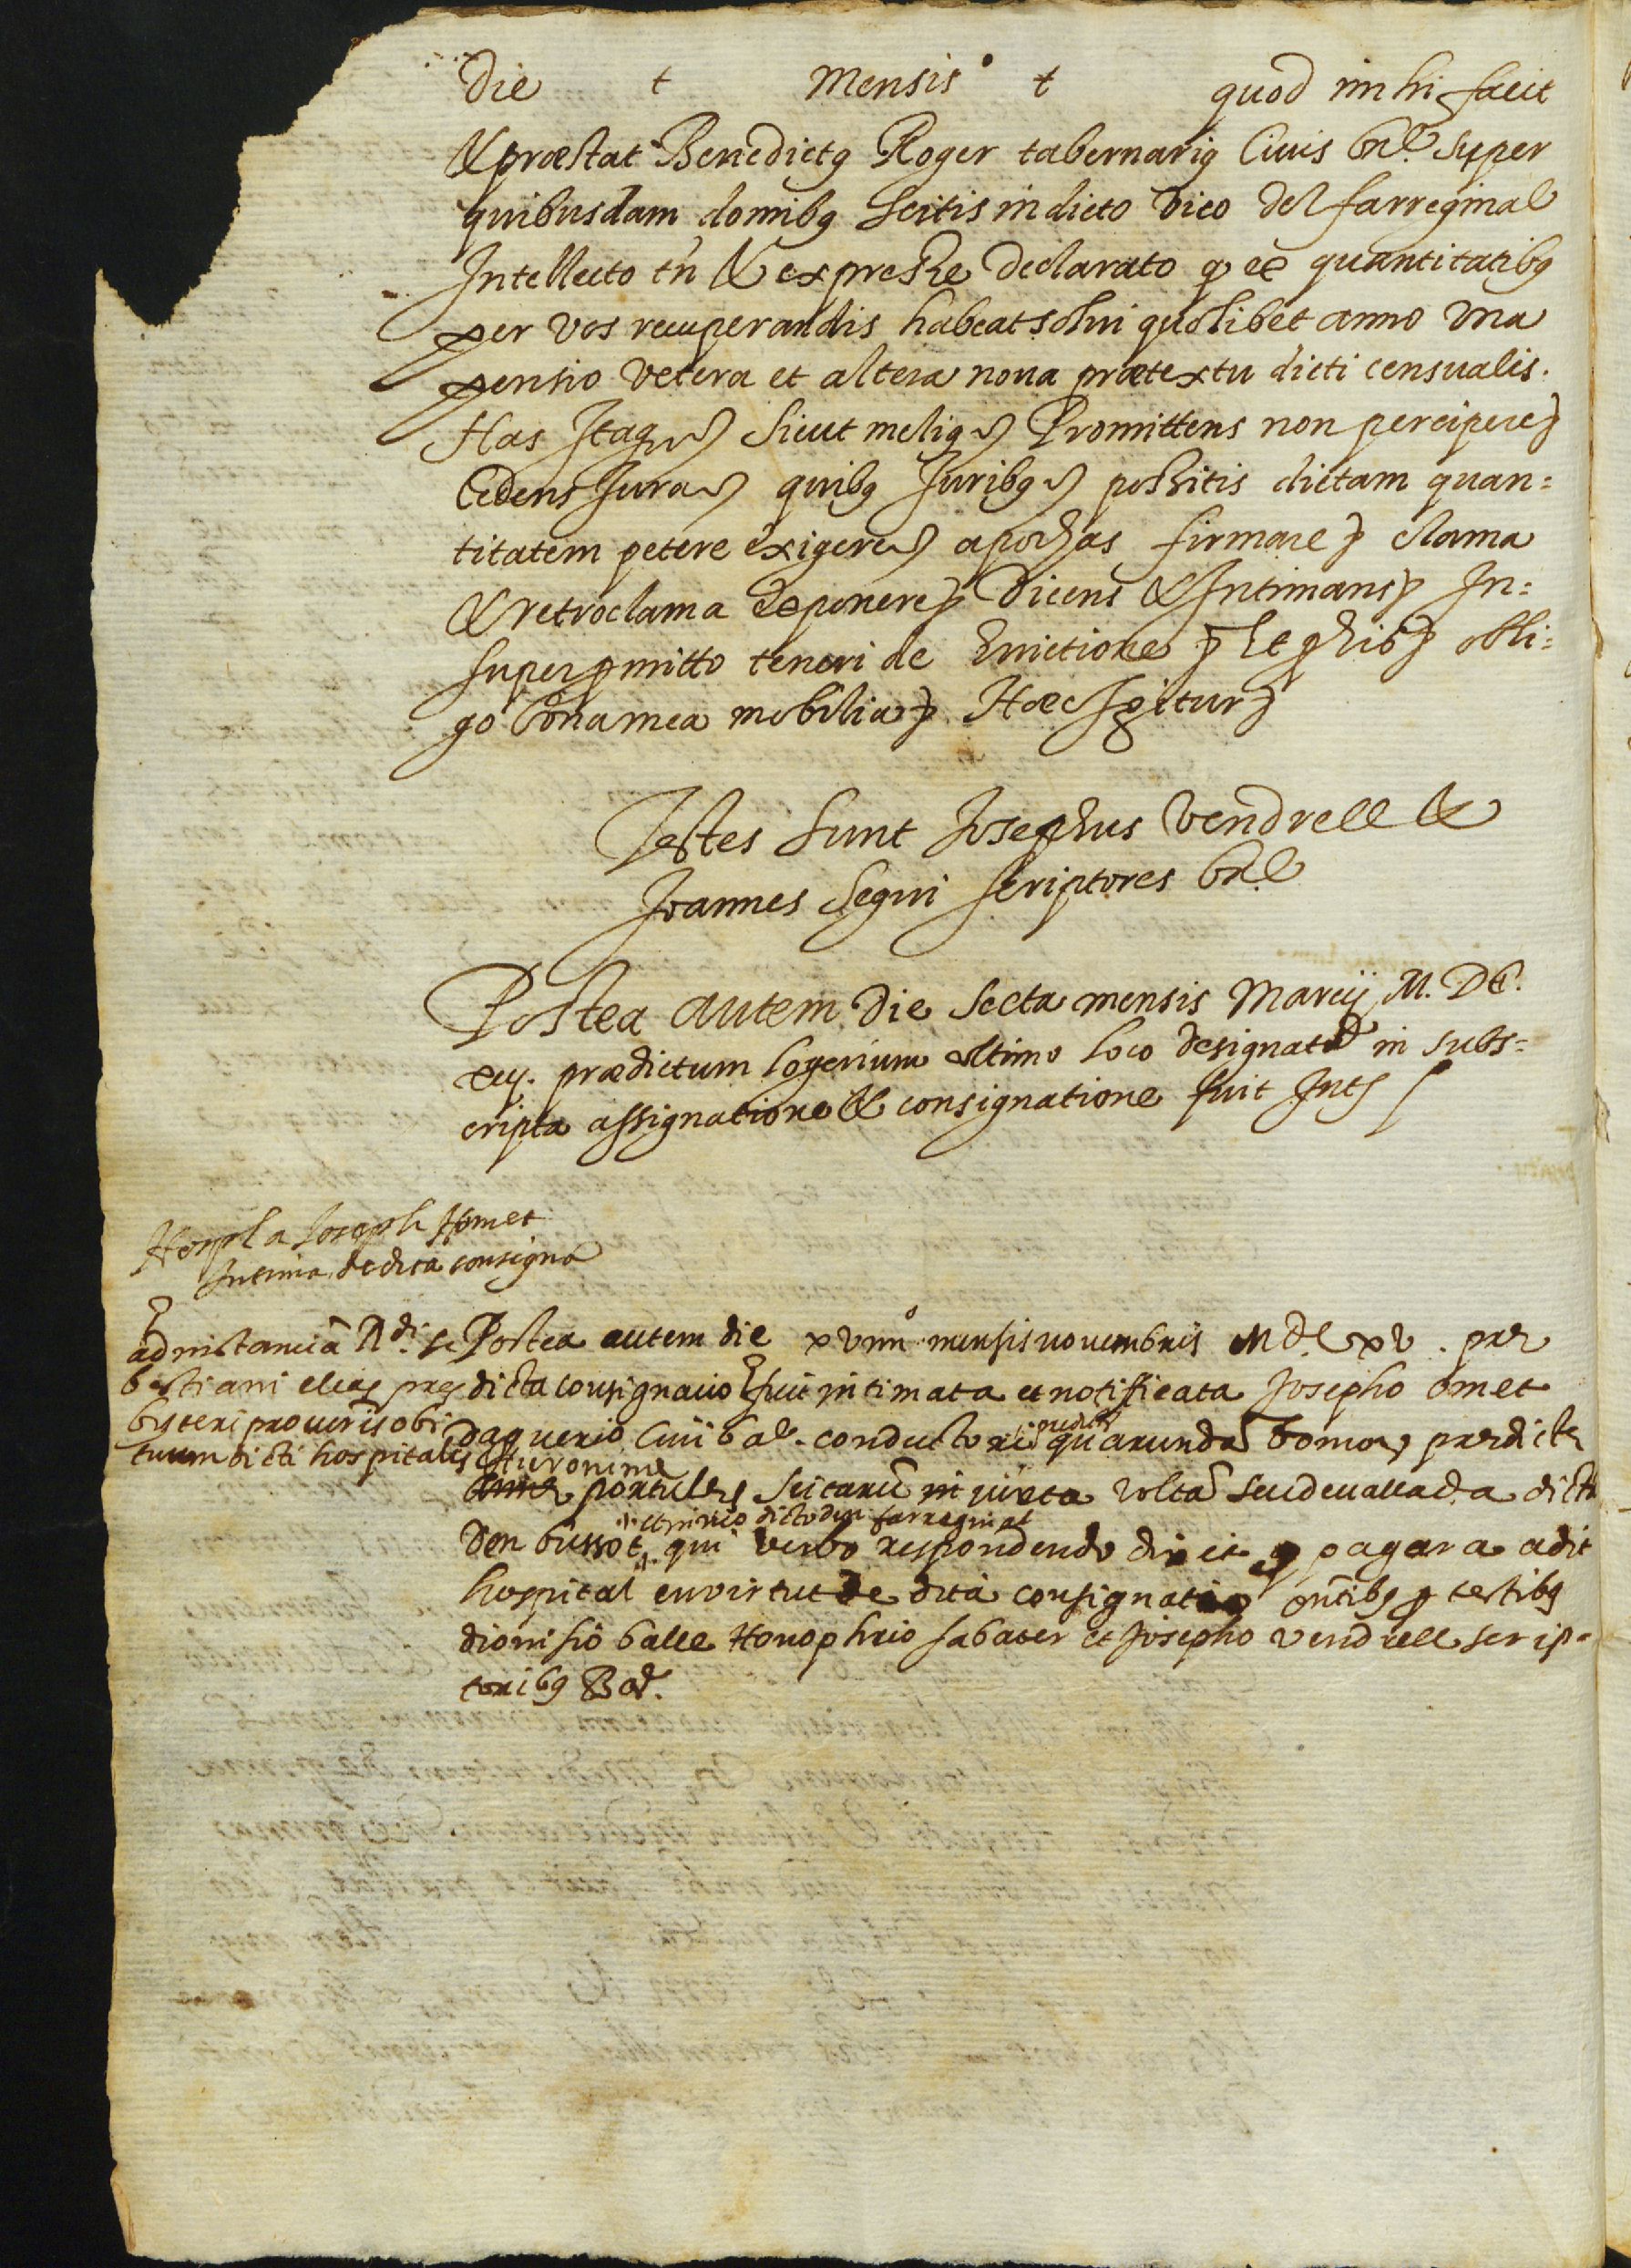 Die t Mensis t quod mihi facit
& præstat Benedictq Roger tabernariq Ciuis Bñe. super
quibusdam domibq scitis in dicto vico del farreginal
Intellecto tñ & expresse declarato q ex quantitatibq
per vos recuperandis habeat solui quolibet anno vna
pensio vetera et altera noua prætextu dicti censualis.
Has Itaq sicut meliq Promittens non percipere
Cedens Jura quibq Juribq possitis dictam quan=
titatem petere exigere apochas firmare clama
& retroclama exponere Dicens & Intimans In=
super pmitto teneri de Euictione Et obli=
go bona mea mobilia Hæc Igitur
Testes sunt Josephus Vendrell &
Joannes Segui scriptores Bñe
Postea autem die secta mensis Marcij M. DC.
xvj. prædictum logerium vltimo loco designatũ in subs=
cripta assignatione & consignatione fuit Int
Hospl a Joseph Homet
Intima de dita consigna
ad instanciã Rdi. Se
bastiani elias pres
biteri procuris obi
tuum dicti hospitalis
Postea autem die xviiiiº mensis nouembris M dC xv. præ
dicta consignacio fuit intimata et notificata Josepho omet
daguerio ciui Bãe. conductori quarundã domor predicte
Hieronime
portules scitarũ in juxta voltã seu devallada dicta
et in vico dicto den farreginal
den bussot. qui verbo respondendo dixit q pagara a dit
hospital en virtut de dita consignatio pñtibq p testibq
dionisio balle Honophrio sabater et Josepho vendrell scrip=
toribq Bar.